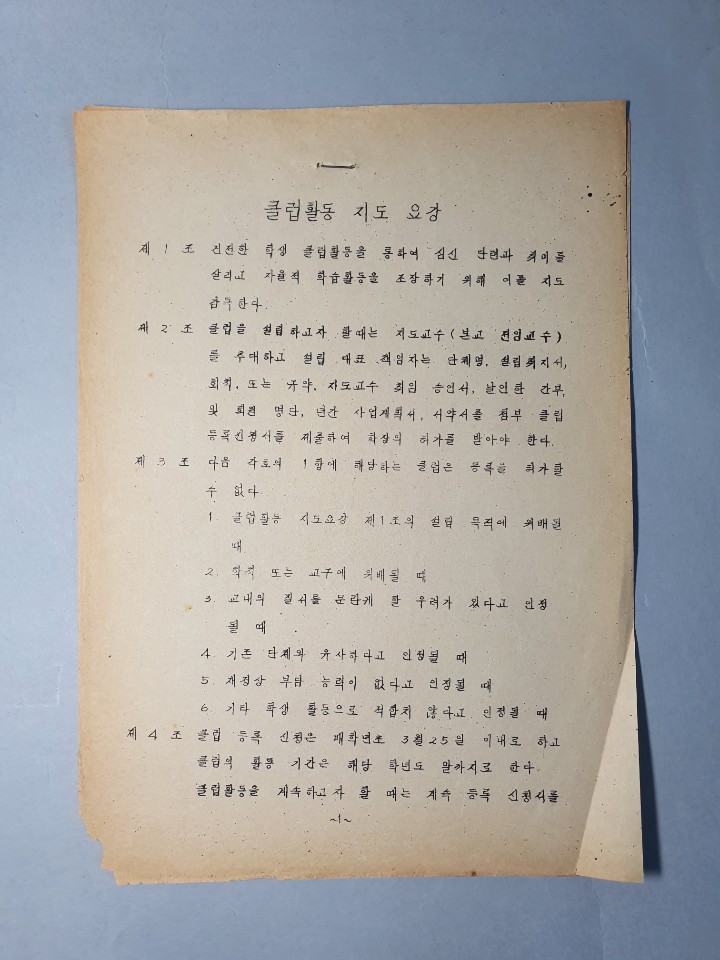 클럽활동 지도 요강
제 1 조 건전한 학생 클럽활동을 통하여 심신 단련과 취미를
살리고 자율적 학습활동을 조장하기 위해 이를 지도
감독한다.
제 2 조 클럽을 설립하고자 할때는 지도교수(본교 전임교수)
를 추대하고 설립 대표 책임자는 단체명, 설립취지서,
회칙, 또는 규약, 지도교수 취임 승인서, 날인한 간부,
및 회원 명단, 년간 사업계획서, 서약서를 첨부 클럽
등록신청서를 제출하여 학장의 허가를 받아야 한다.
제 3 조 다음 각호의 1항에 해당하는 클럽은 등록을 허가할
수 없다.
1. 클럽활동 지도요강 제1조의 설립 목적에 위배될
때
2. 학칙 또는 교규에 위배될 때
3. 교내의 질서를 문란케 할 우려가 있다고 인정
될 때
4. 기존 단체와 유사하다고 인정될 때
5. 재정상 부담 능력이 없다고 인정될 때
6. 기타 학생 활동으로 적합치 않다고 인정될 때
제 4 조 클럽 등록 신청은 매학년초 3월 25일 이내로 하고
클럽의 활동 기간은 해당 학년도 말까지로 한다.
클럽활동을 계속하고자 할 때는 계속 등록 신청서를
~1~